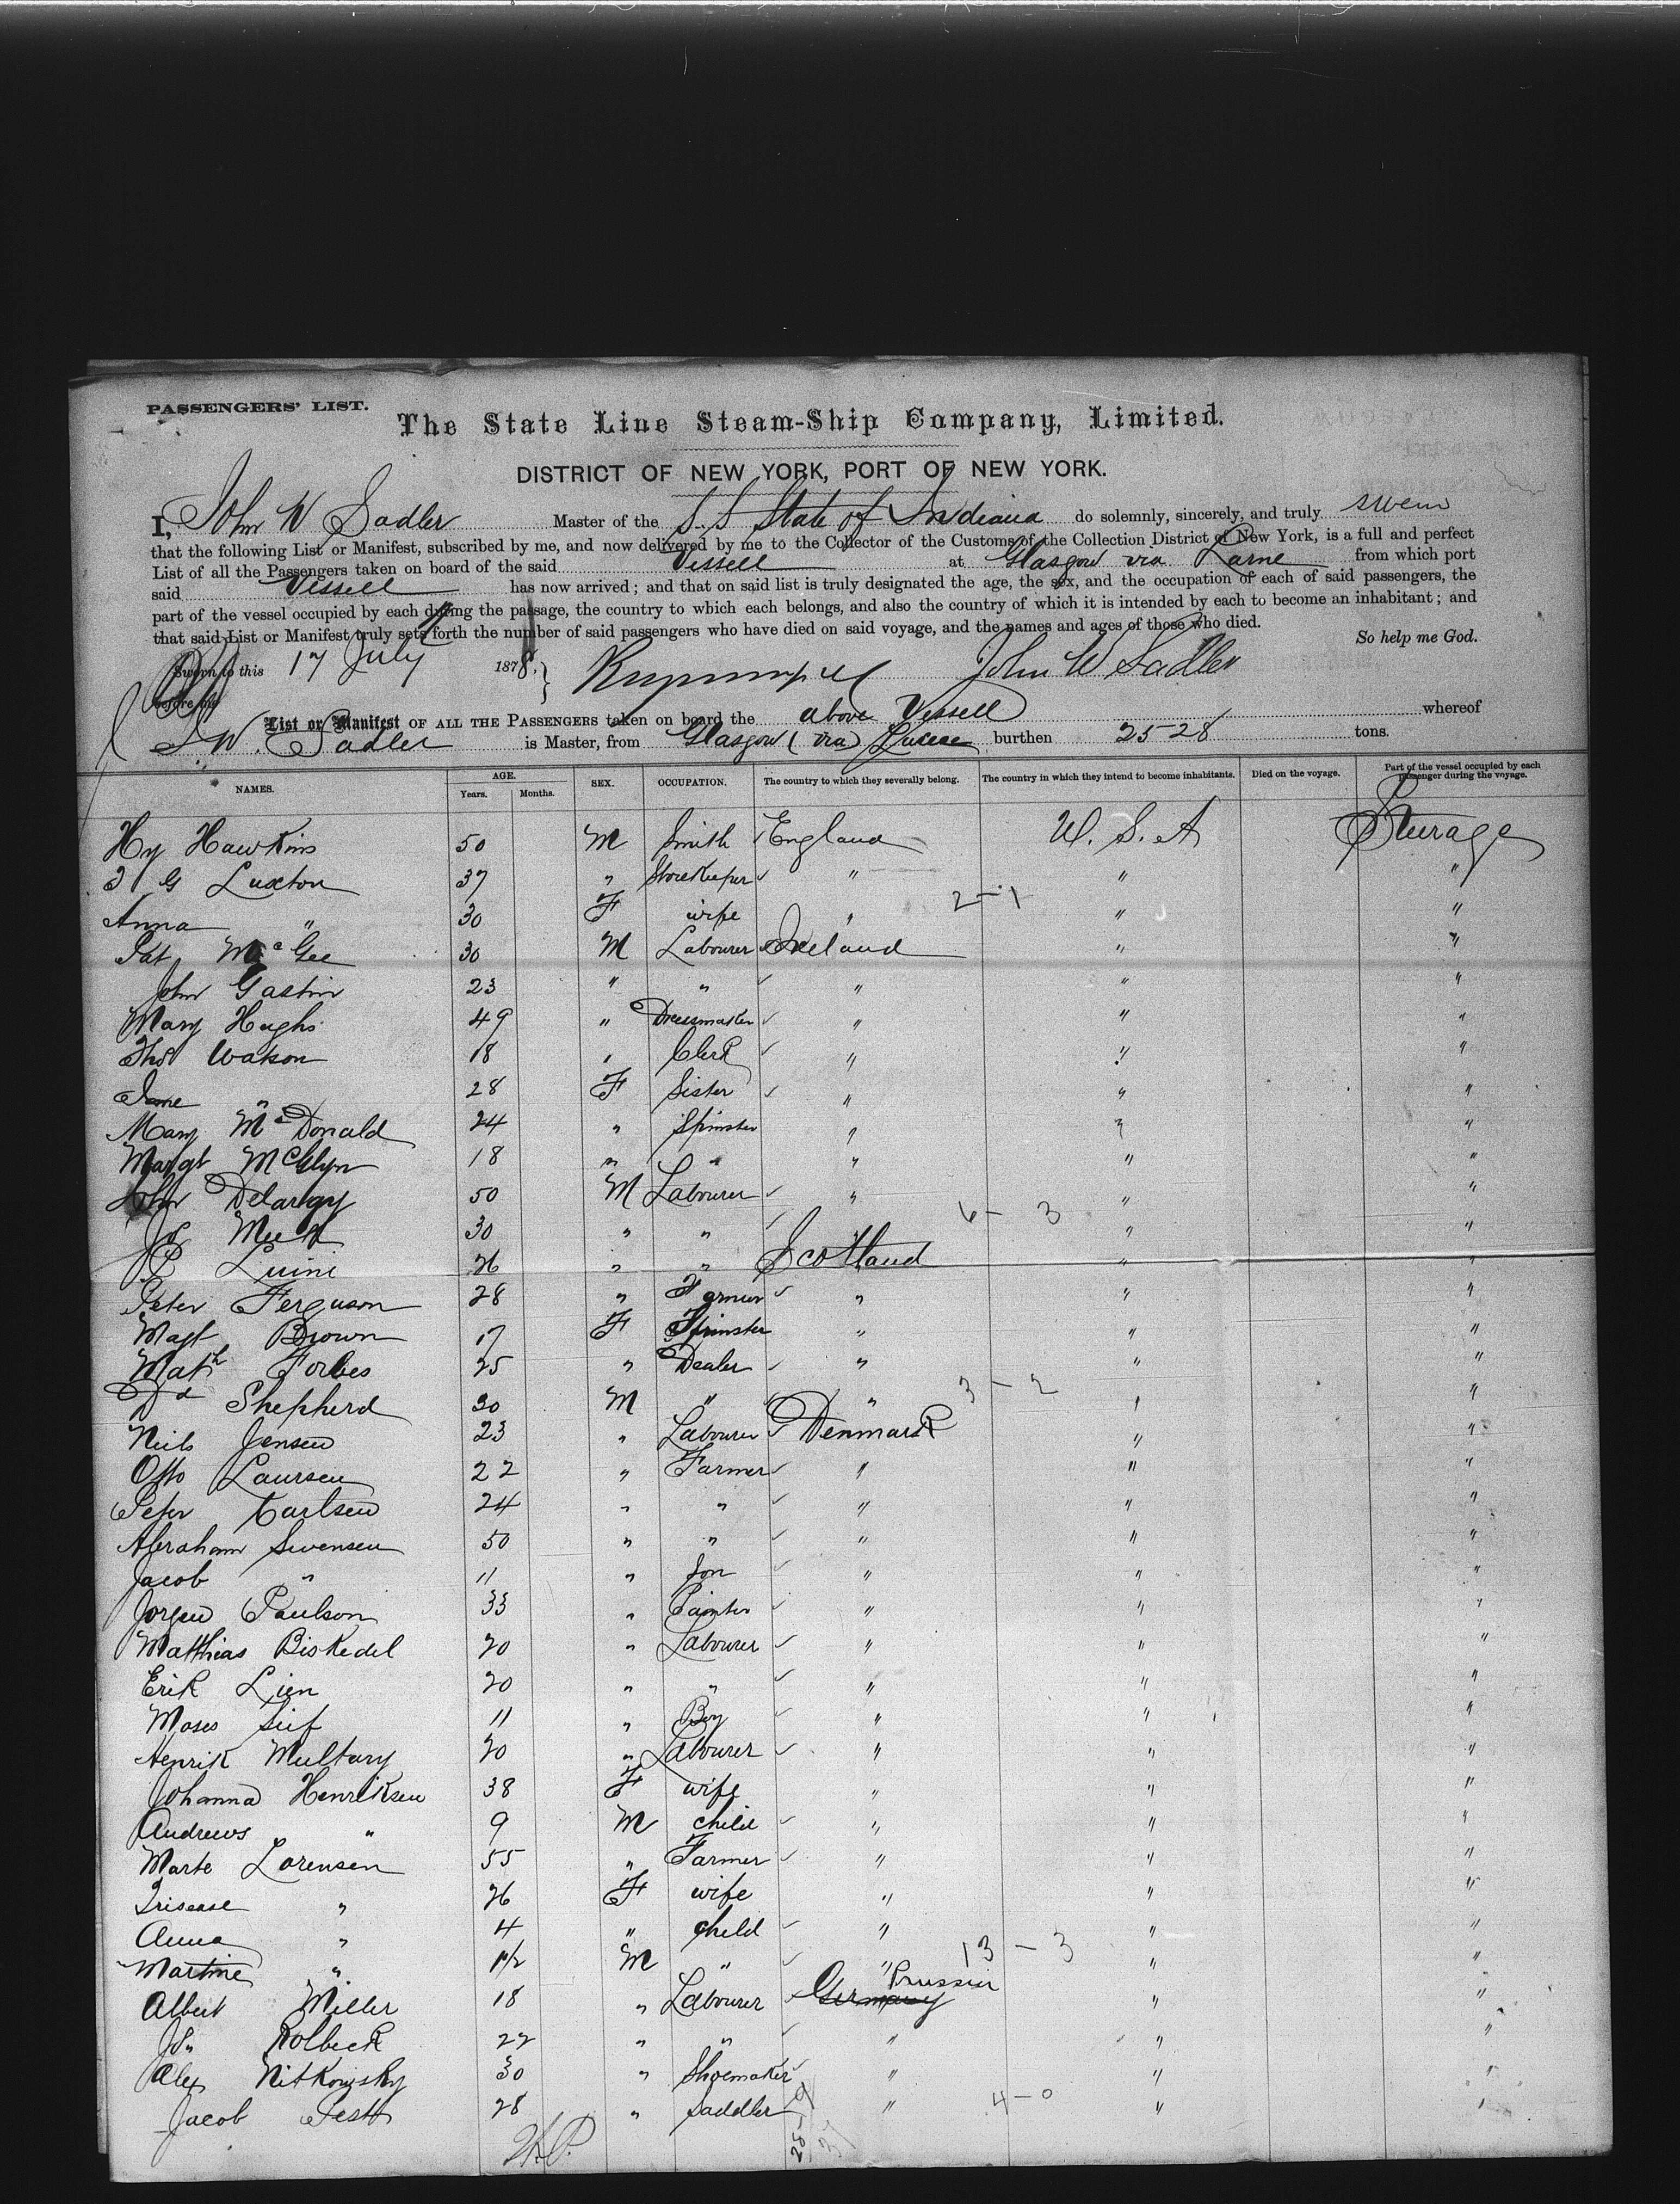 PASSENGERS' LIST.
The State Line Steam-Ship Company, Limited.
DISTRICT OF NEW YORK, PORT OF NEW YORK.
I, John W Sadler Master of the S.S State of Indiana do solemnly, sincerely, and truly swear
that the following List or Manifest, subscribed by me, and now delivered by me to the Collector of the Customs of the Collection District of New York, is a full and perfect
List of all the Passengers taken on board of the said Vessell at Glasgow via Larne from which port
said Vessell has now arrived; and that on said list is truly designated the age, the sex, and the occupation of each of said passengers, the
part of the vessel occupied by each during the passage, the country to which each belongs, and also the country of which it is intended by each to become an inhabitant; and
that said List or Manifest truly sets forth the number of said passengers who have died on said voyage, and the names and ages of those who died.
So help me God.
Sworn to this 17 July 1878. John W Sadler
before me
List or Manifest OF ALL THE PASSENGERS taken on board the above Vessell whereof
J W. Sadler is Master, from Glasgow (via) Larne burthen 2528 tons.
NAMES. AGE. Years. Months. SEX. OCCUPATION. The country to which they severally belong. The country in which they intend to become inhabitants. Died on the voyage. Part of the vessel occupied by each passenger during the voyage.
Hy Hawkins 50 M Smith England U. S. A Steerage
J G Luxton 37 " Storekeeper " " "
Anna " 30 F wife " 2-1 " "
Pat McGee 30 M Labourer Ireland " "
John Gastin 23 " " " " "
Mary Hughs 49 " Dressmaker " " "
Thos Watson 18 " Clerk " " "
Jane " 28 F Sister " " "
Mary McDonald 24 " Spinster " " "
Margt McGlyn 18 " " " " "
John Delargy 50 M Labourer " " "
Js Meek 30 " " 6-3 " "
P Luini 26 " " Scotland " "
Peter Ferguson 28 " Farmer " " "
Magt Brown 17 F Spinster " " "
Math Forbes 25 " Dealer " " "
Dd Shepherd 30 M " " 3-2 " "
Neils Jensen 23 " Labourer Denmark " "
Otto Laursen 22 " Farmer " " "
Peter Carlsen 24 " " " " "
Abraham Swensen 50 " " " " "
Jacob " 11 " Son " " "
Jorgen Paulson 33 " Painter " " "
Matthias Biskedel 20 " Labourer " " "
Erik Lien 20 " " " " "
Moses Seif 11 " Boy " " "
Henrik Multary 20 " Labourer " " "
Johanna Henriksen 38 F wife " " "
Andrews " 9 M child " " "
Marte Lorensen 55 " Farmer " " "
" 26 F wife " " "
Anna " 4 " child " " "
Martine " 1½ M " " 13-3 " "
Albert Miller 18 " Labourer Germany Prussia " "
Js. Kolbeck 22 " " " " "
Alex Nitkowsky 30 " Shoemaker " " "
Jacob Pesth 28 " Saddler " 4-0 " "
28-9
37